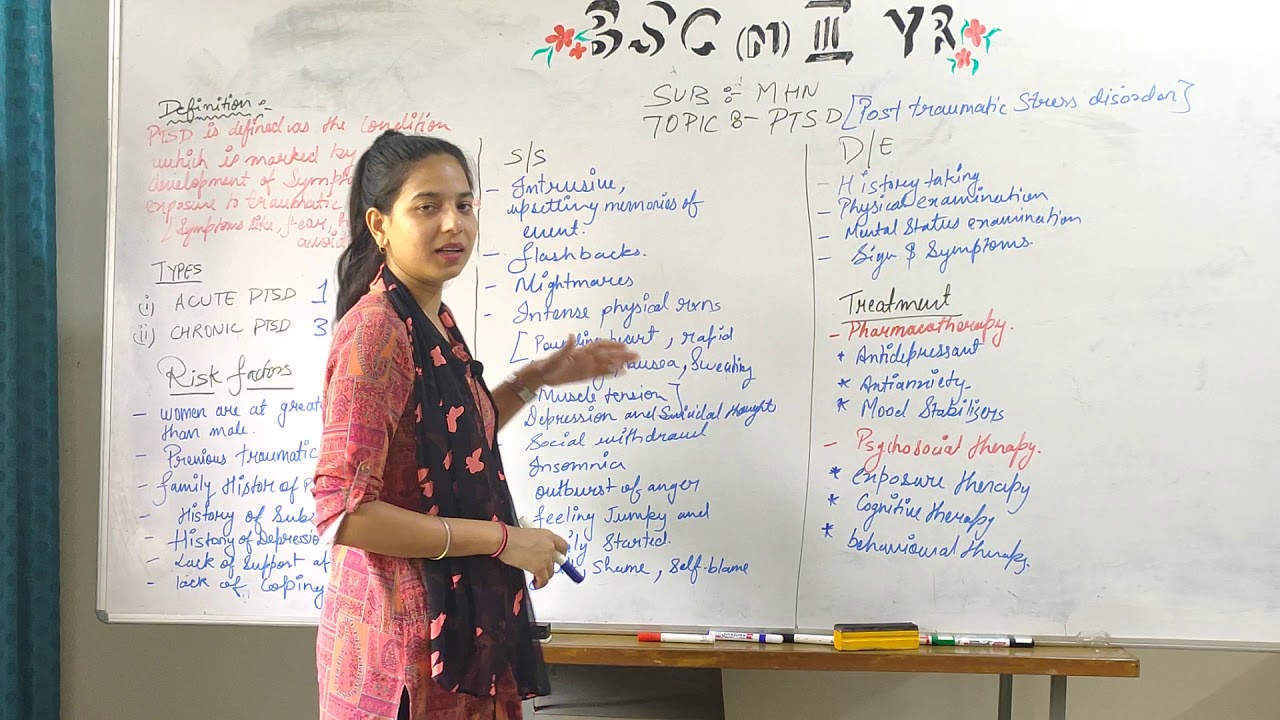 BSC (N) III YR
SUB :- MHN
TOPIC :- PTSD [Post traumatic Stress disorder]
Definition :-
PTSD is defined as the condition
which is marked by
development of
exposure to traumatic
[Symptoms like, fear,
TYPES
(i) ACUTE PTSD 1
(ii) CHRONIC PTSD 3
Risk factors
- women are at
than male.
- Previous traumatic
- family Histor of
- History of
- History of
- Lack of Support
- lack of Coping
S/S
- Intrusive,
upsetting memories of
event.
- flashbacks.
- Nightmares
- Intense physical rxns
[heart, rapid
nausea, Sweating
Muscle tension]
Depression and Suicidal thought
Social withdrawl
Insomnia
outburst of anger
feeling Jumpy and
Started.
Shame, Self-blame
D/E
- History taking
- Physical examination
- Mental Status examination
- Sign & Symptoms.
Treatment
- Pharmacotherapy.
* Antidepressant
* Antianxiety
* Mood Stabilizers
- Psychosocial therapy.
* Exposure therapy
* Cognitive therapy
* behavioural therapy.